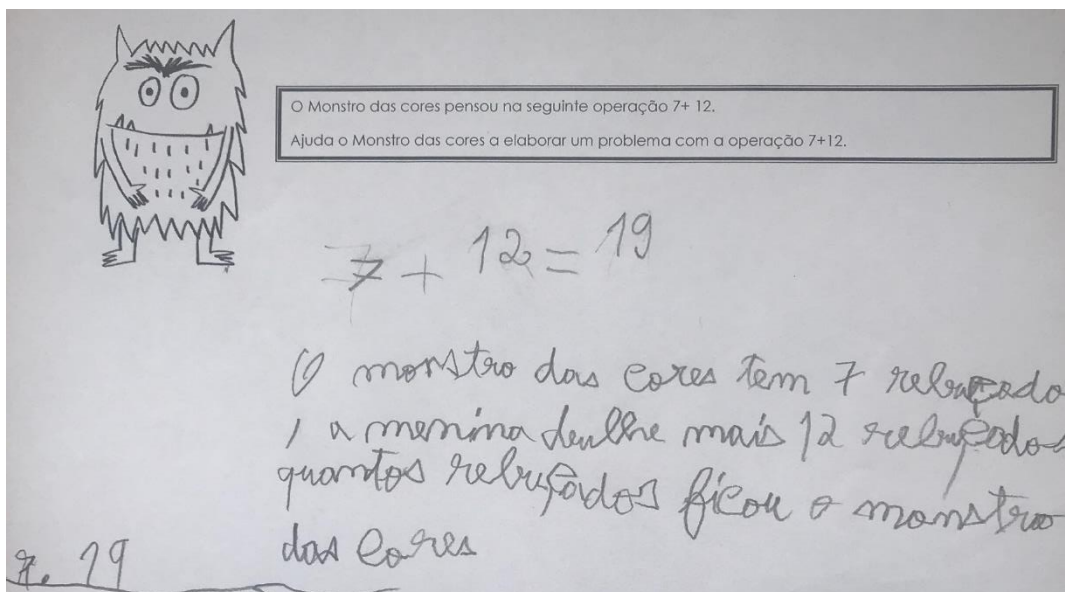 O Monstro das cores pensou na seguinte operação 7+ 12.
Ajuda o Monstro das cores a elaborar um problema com a operação 7+12.
7 + 12 = 19
O monstro das cores tem 7 rebuçado
, a menina deulhe mais 12 rebuçados
quantos rebuçados ficou o monstro
das cores
R. 19